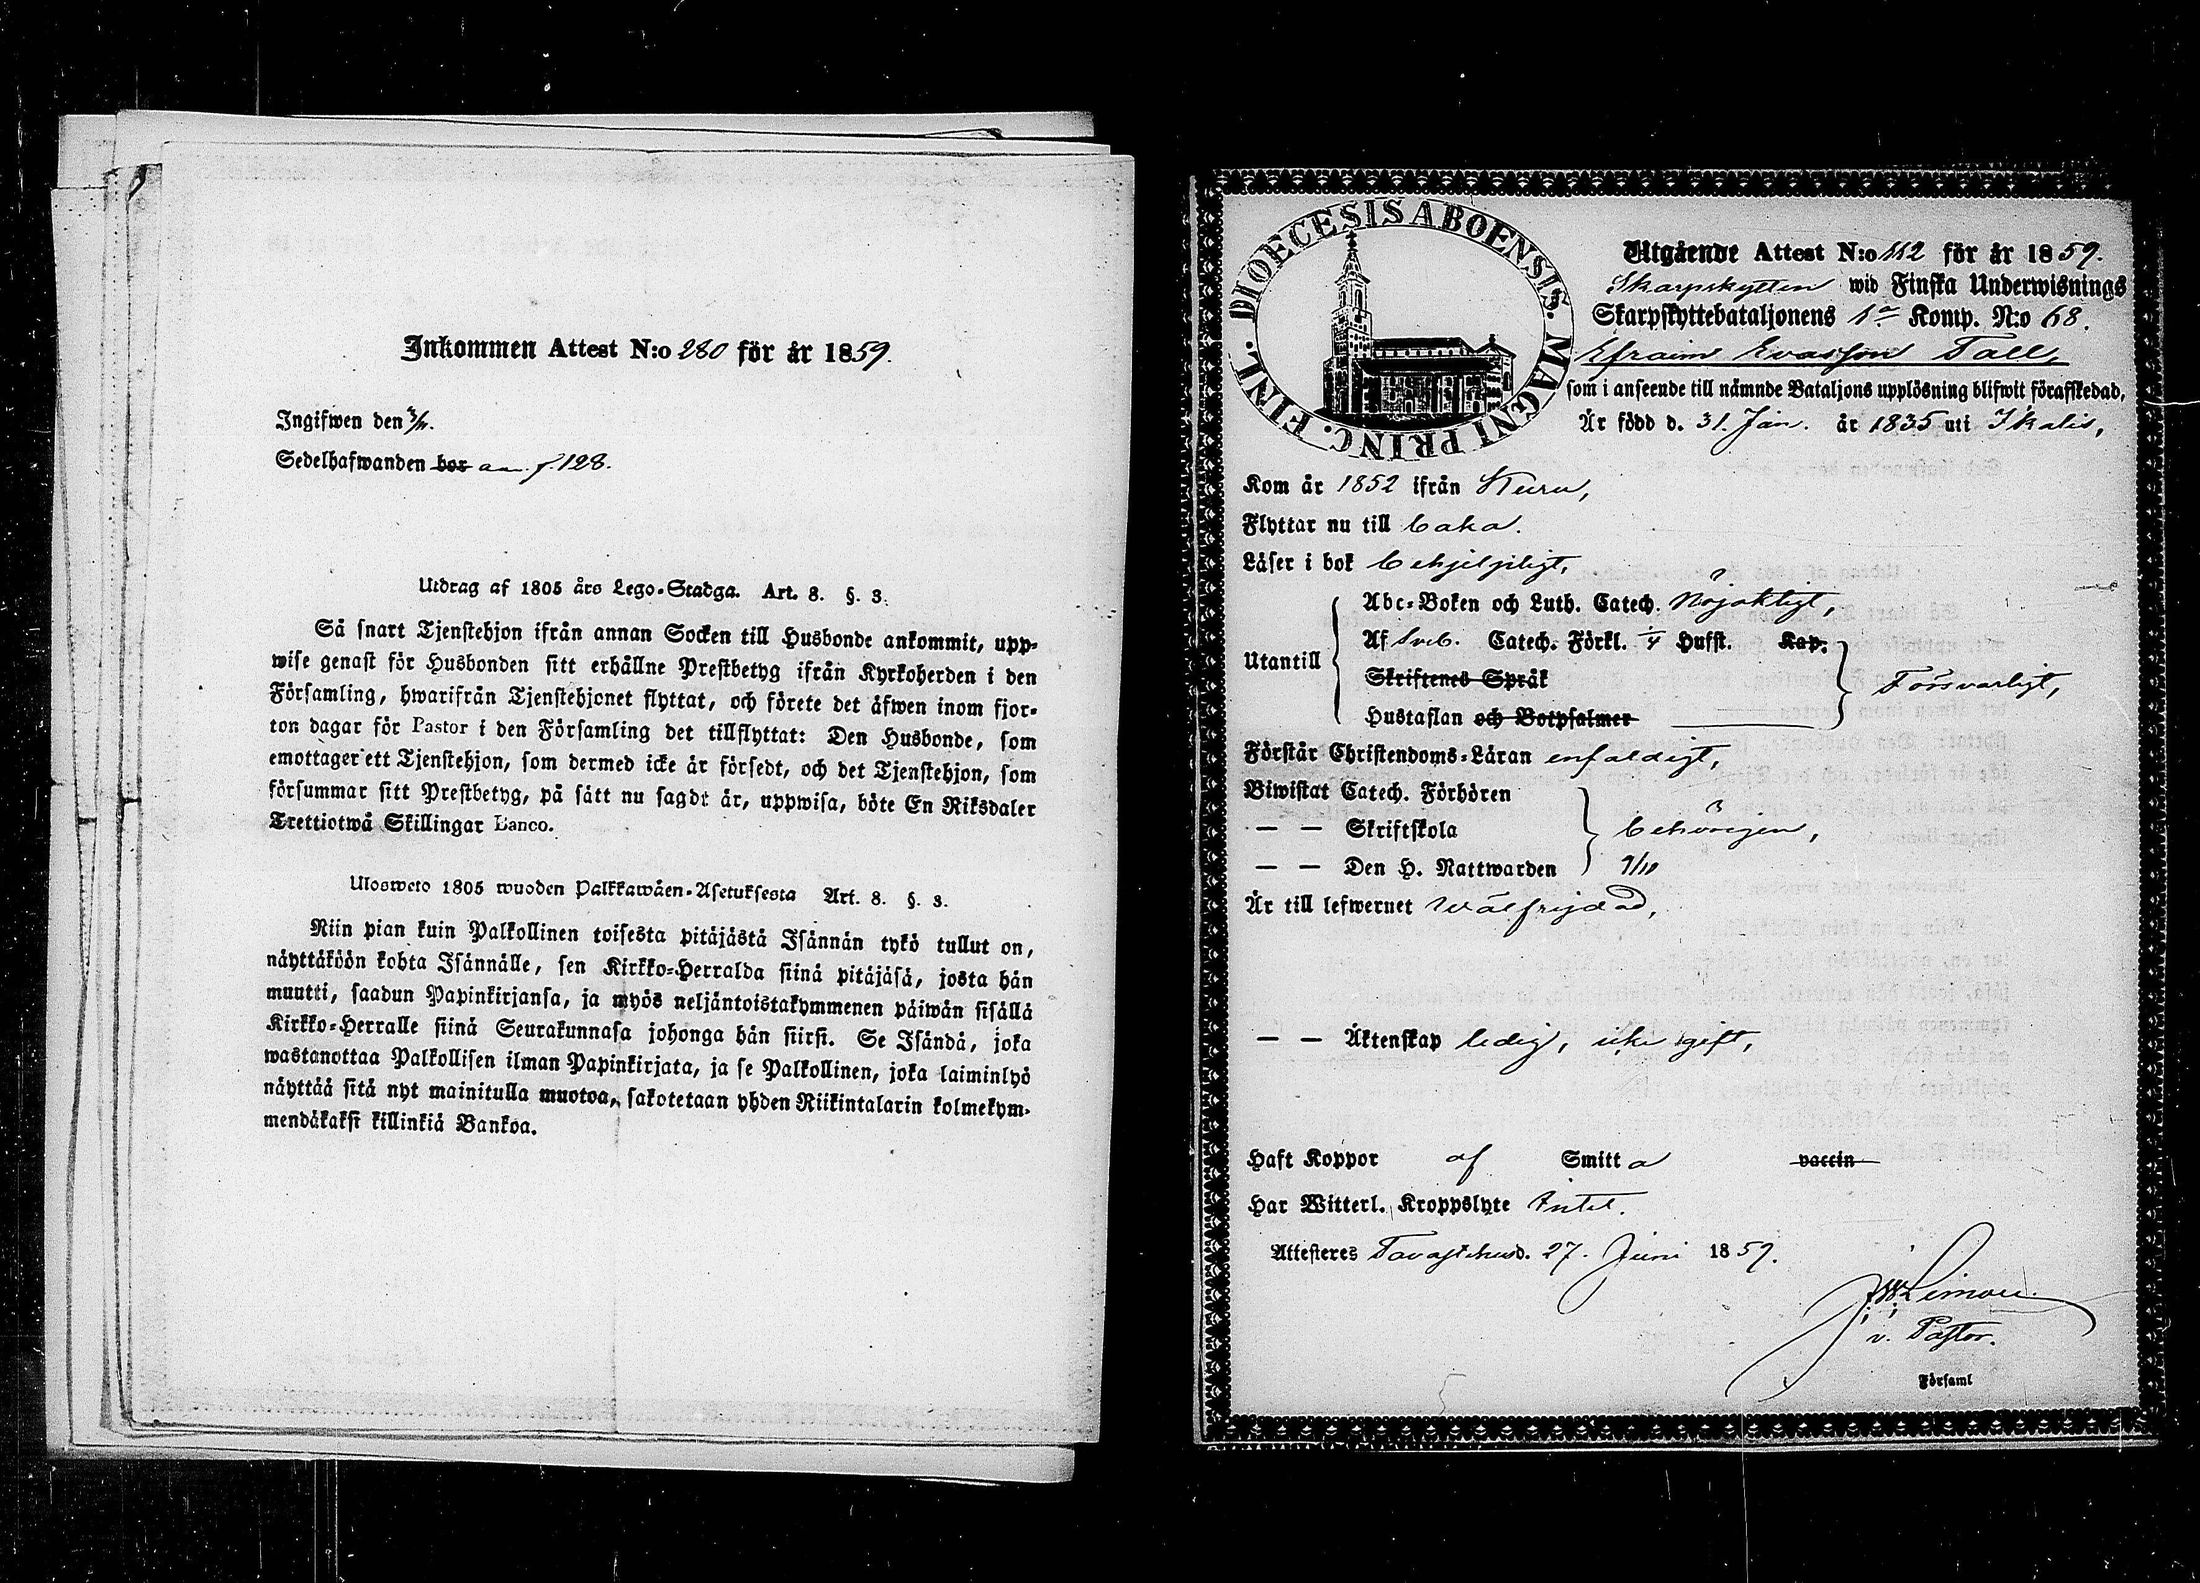 Inkommen Attest N:o 280 för år 1859.
Ingifwen den 3/11.
Sedelhafwanden bor an. f. 128.
Utdrag af 1805 års Lego-Stadga. Art. 8. §. 3.
Så snart Tjenstehjon ifrån annan Socken till Husbonde ankommit, upp-
wise genast för Husbonden sitt erhållne Prestbetyg ifrån Kyrkoherden i den
Församling, hwarifrån Tjenstehjonet flyttat, och förete det äfwen inom fjor-
ton dagar för Pastor i den Församling det tillflyttat: Den Husbonde, som
emottager ett Tjenstehjon, som dermed icke är försedt, och det Tjenstehjon, som
försummar sitt Prestbetyg, på sätt nu sagdt är, uppwisa, böte En Riksdaler
Trettiotwå Skillingar Banco.
Ulosweto 1805 wuoden Palkkawäen-Asetuksesta Art. 8. §. 3.
Niin pian kuin Palkollinen toisesta pitäjästä Isännän tykö tullut on,
näyttäköön kohta Isännälle, sen Kirkko-Herralda siinä pitäjäsä, josta hän
muutti, saadun Papinkirjansa, ja myös neljäntoistakymmenen päiwän sisällä
Kirkko-Herralle siinä Seurakunnasa johonga hän siirsi. Se Isändä, joka
wastanottaa Palkollisen ilman Papinkirjata, ja se Palkollinen, joka laiminlyö
näyttää sitä nyt mainitulla muotoa, sakotetaan yhden Riikintalarin kolmekym-
mendäkaksi killinkiä Bankoa.
DIOECESIS ABOENSIS. MAGNI PRINC. FINL.
Utgående Attest N:o 112 för år 1859.
Skarpskytten wid Finska Underwisnings
Skarpskyttebataljonens 1a Komp. N:o 68.
Efraim Evasson Tall,
som i anseende till nämnde Bataljons upplösning blifwit förafskedad,
Är född d. 31. Jan. år 1835 uti Ikalis,
Kom år 1852 ifrån Kuru,
Flyttar nu till baka.
Läser i bok behjelpligt,
Utantill
Abc-Boken och Luth. Catech. Nöjaktigt,
Af Sveb. Catech. Förkl. 4 Hufst. Kap.
Skriftenes Språk
Hustaflan och Botpsalmer
Försvarligt,
Förstår Christendoms-Läran enfaldigt,
Biwistat Catech. Förhören
— — Skriftskola
— — Den H. Nattwarden
behörigen,
9/10
Är till lefwernet wälfrejdad,
— — Äktenskap ledig, icke gift,
Haft Koppor af Smitta vaccin
Har Witterl. Kroppslyte Intet.
Attesteres Tavastehus d. 27. Juni 1859.
v. Pastor.
Församl